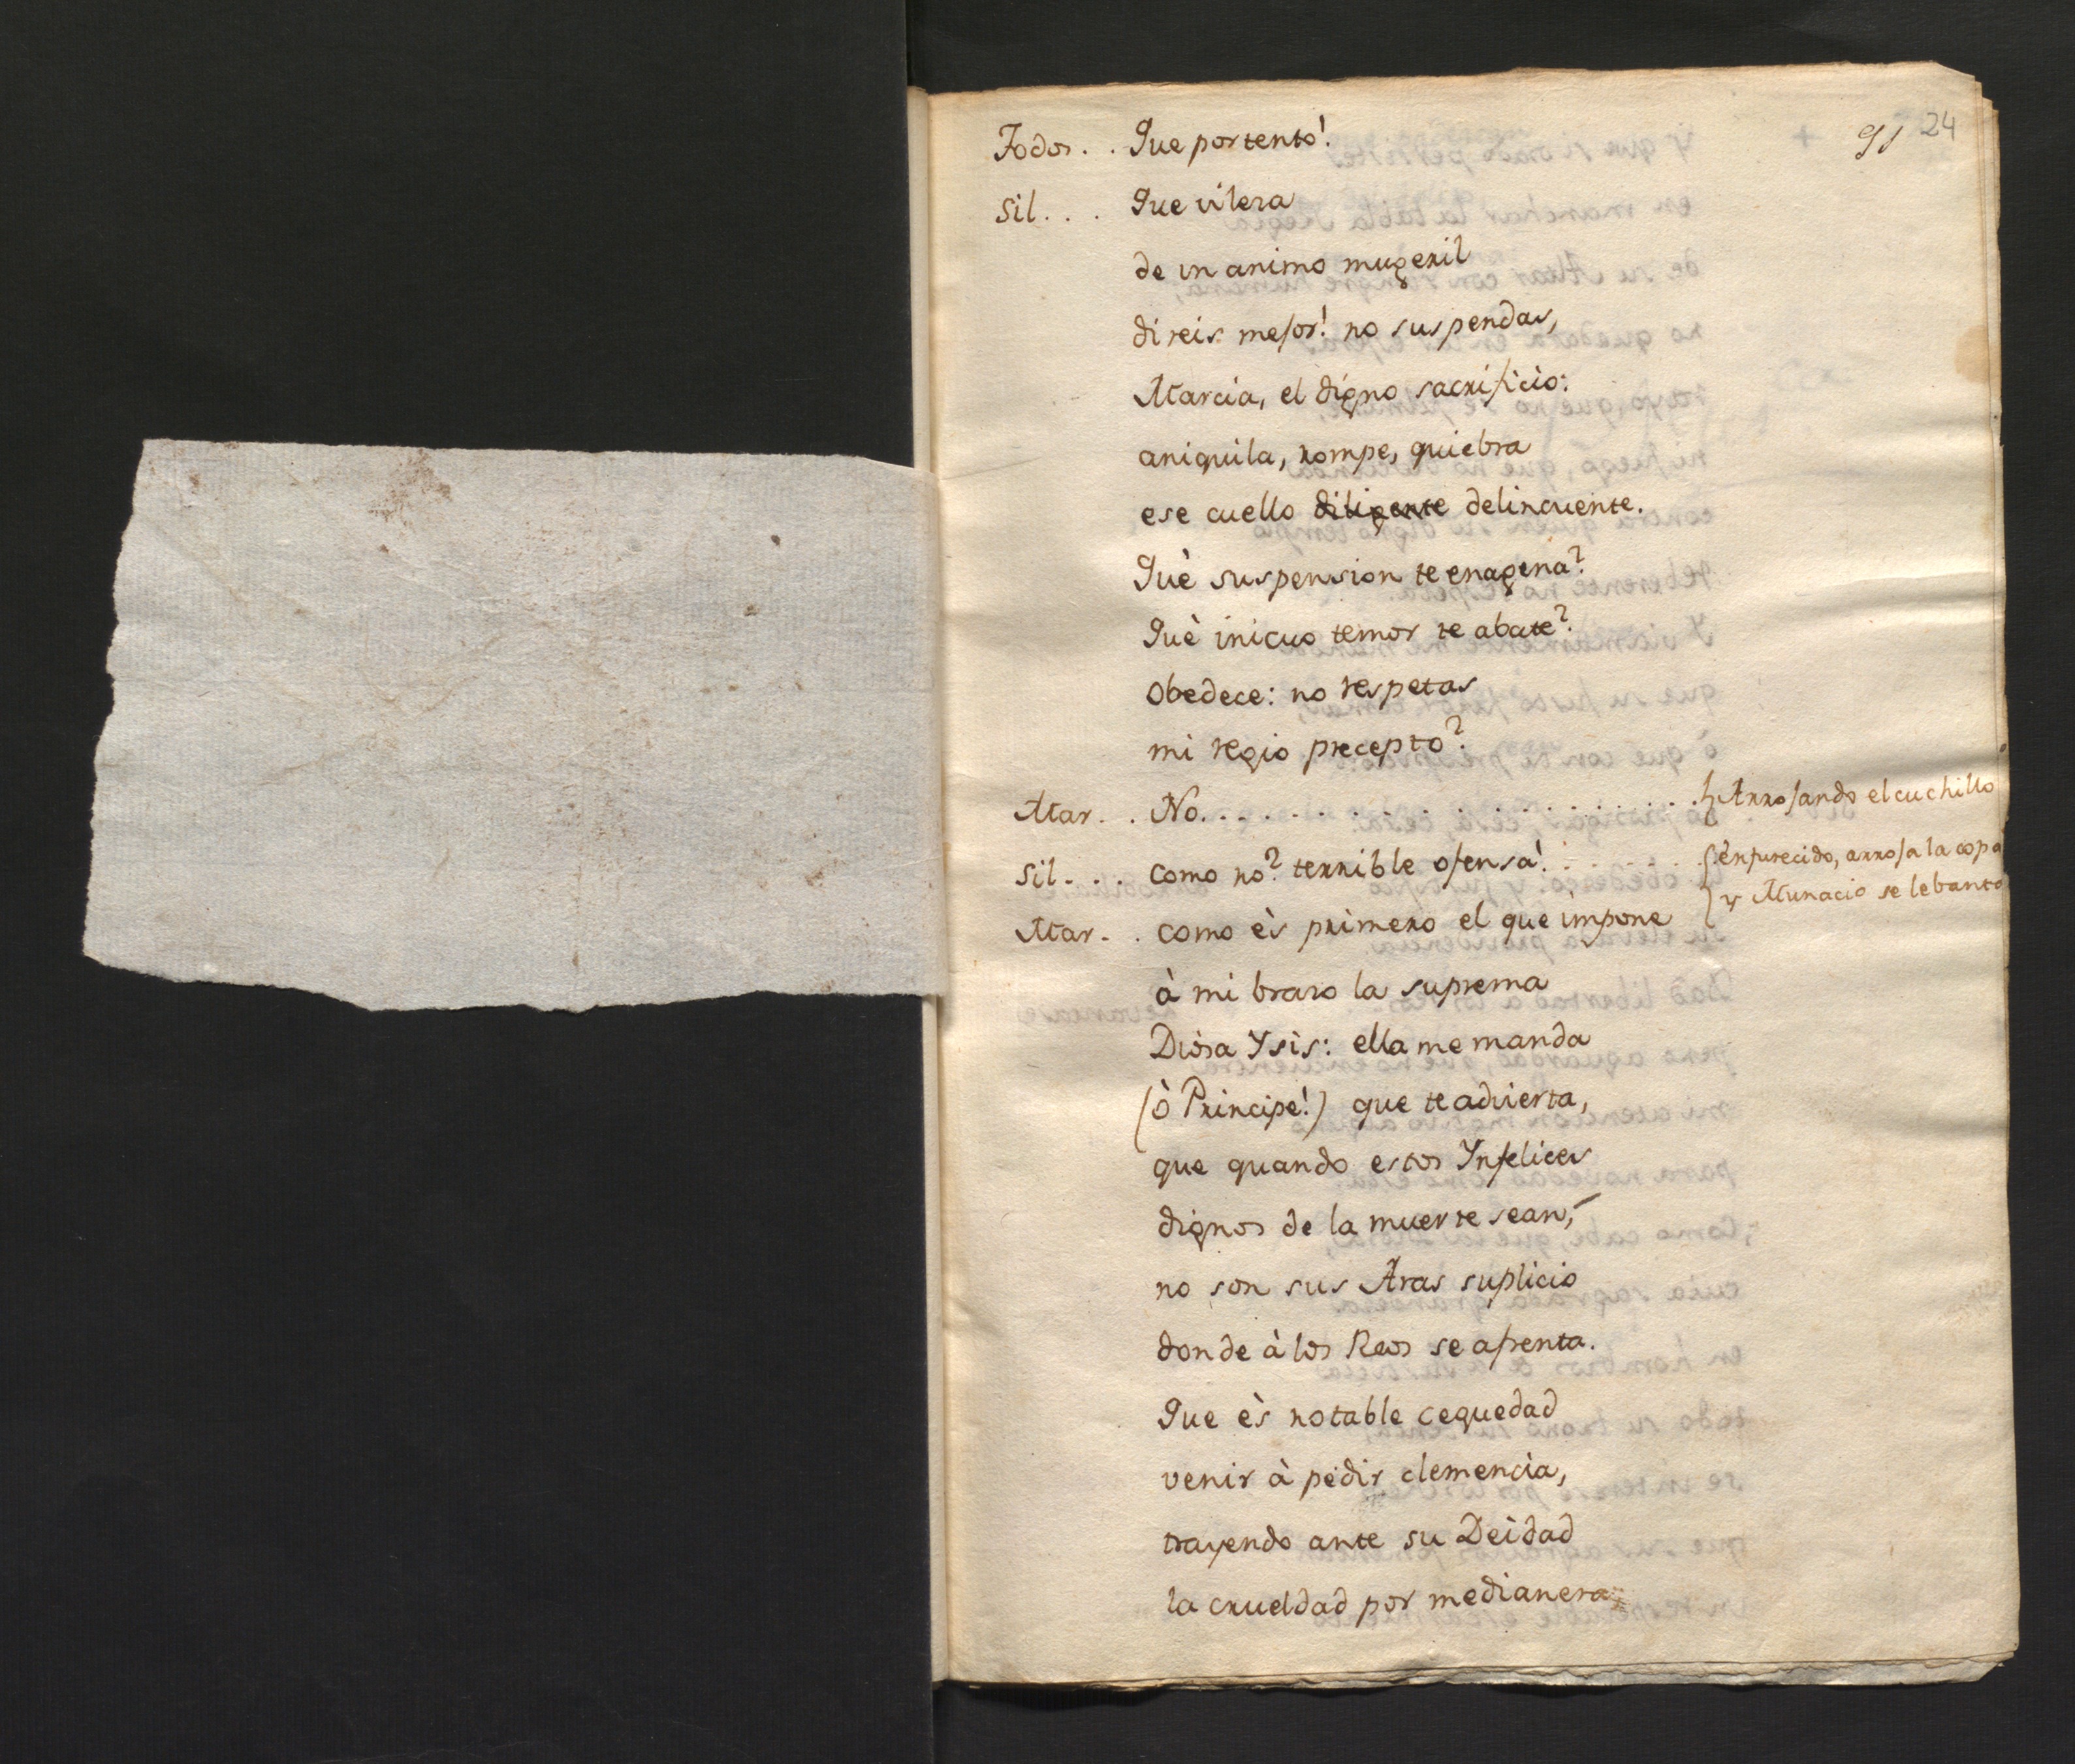 91 24
Todos. . Que portento!
Sil. . . Que vileza
de un animo mugeril
direis mejor! no suspendas,
Marcia, el digno sacrificio:
aniquila, rompe, quiebra
ese cuello diligente delincuente.
Què suspension te enagena?
Què inicuo temor te abate?
Obedece: no respetas
mi regio precepto?
Mar. . No. . . . . . . . . . . . . . . . Arrojando el cuchillo
Sil. . . como no? terrible ofensa! . . . . . . enfurecido, arroja la copa
y Munacio se lebanta
Mar. . como ès primero el que impone
à mi brazo la suprema
Diosa Ysis: ella me manda
(ò Principe!) que te advierta,
que quando estos Ynfelices
dignos de la muerte sean,
no son sus Aras suplicio
donde à los Reos se afrenta.
Que ès notable ceguedad
venir à pedir clemencia,
trayendo ante su Deidad
la crueldad por medianera;